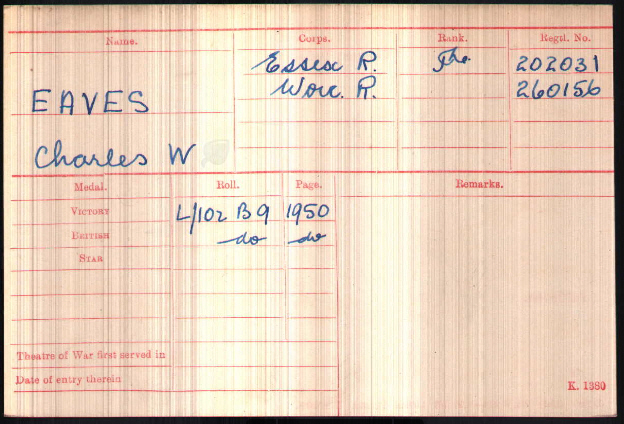 Name. Corps. Rank. Regtl. No.
Essex R. Pte. 202031
Worc. R. 260156
EAVES
Charles W
Medal. Roll. Page. Remarks.
VICTORY L/102 B9 1950
BRITISH do do
STAR
Theatre of War first served in
Date of entry therein
K. 1380